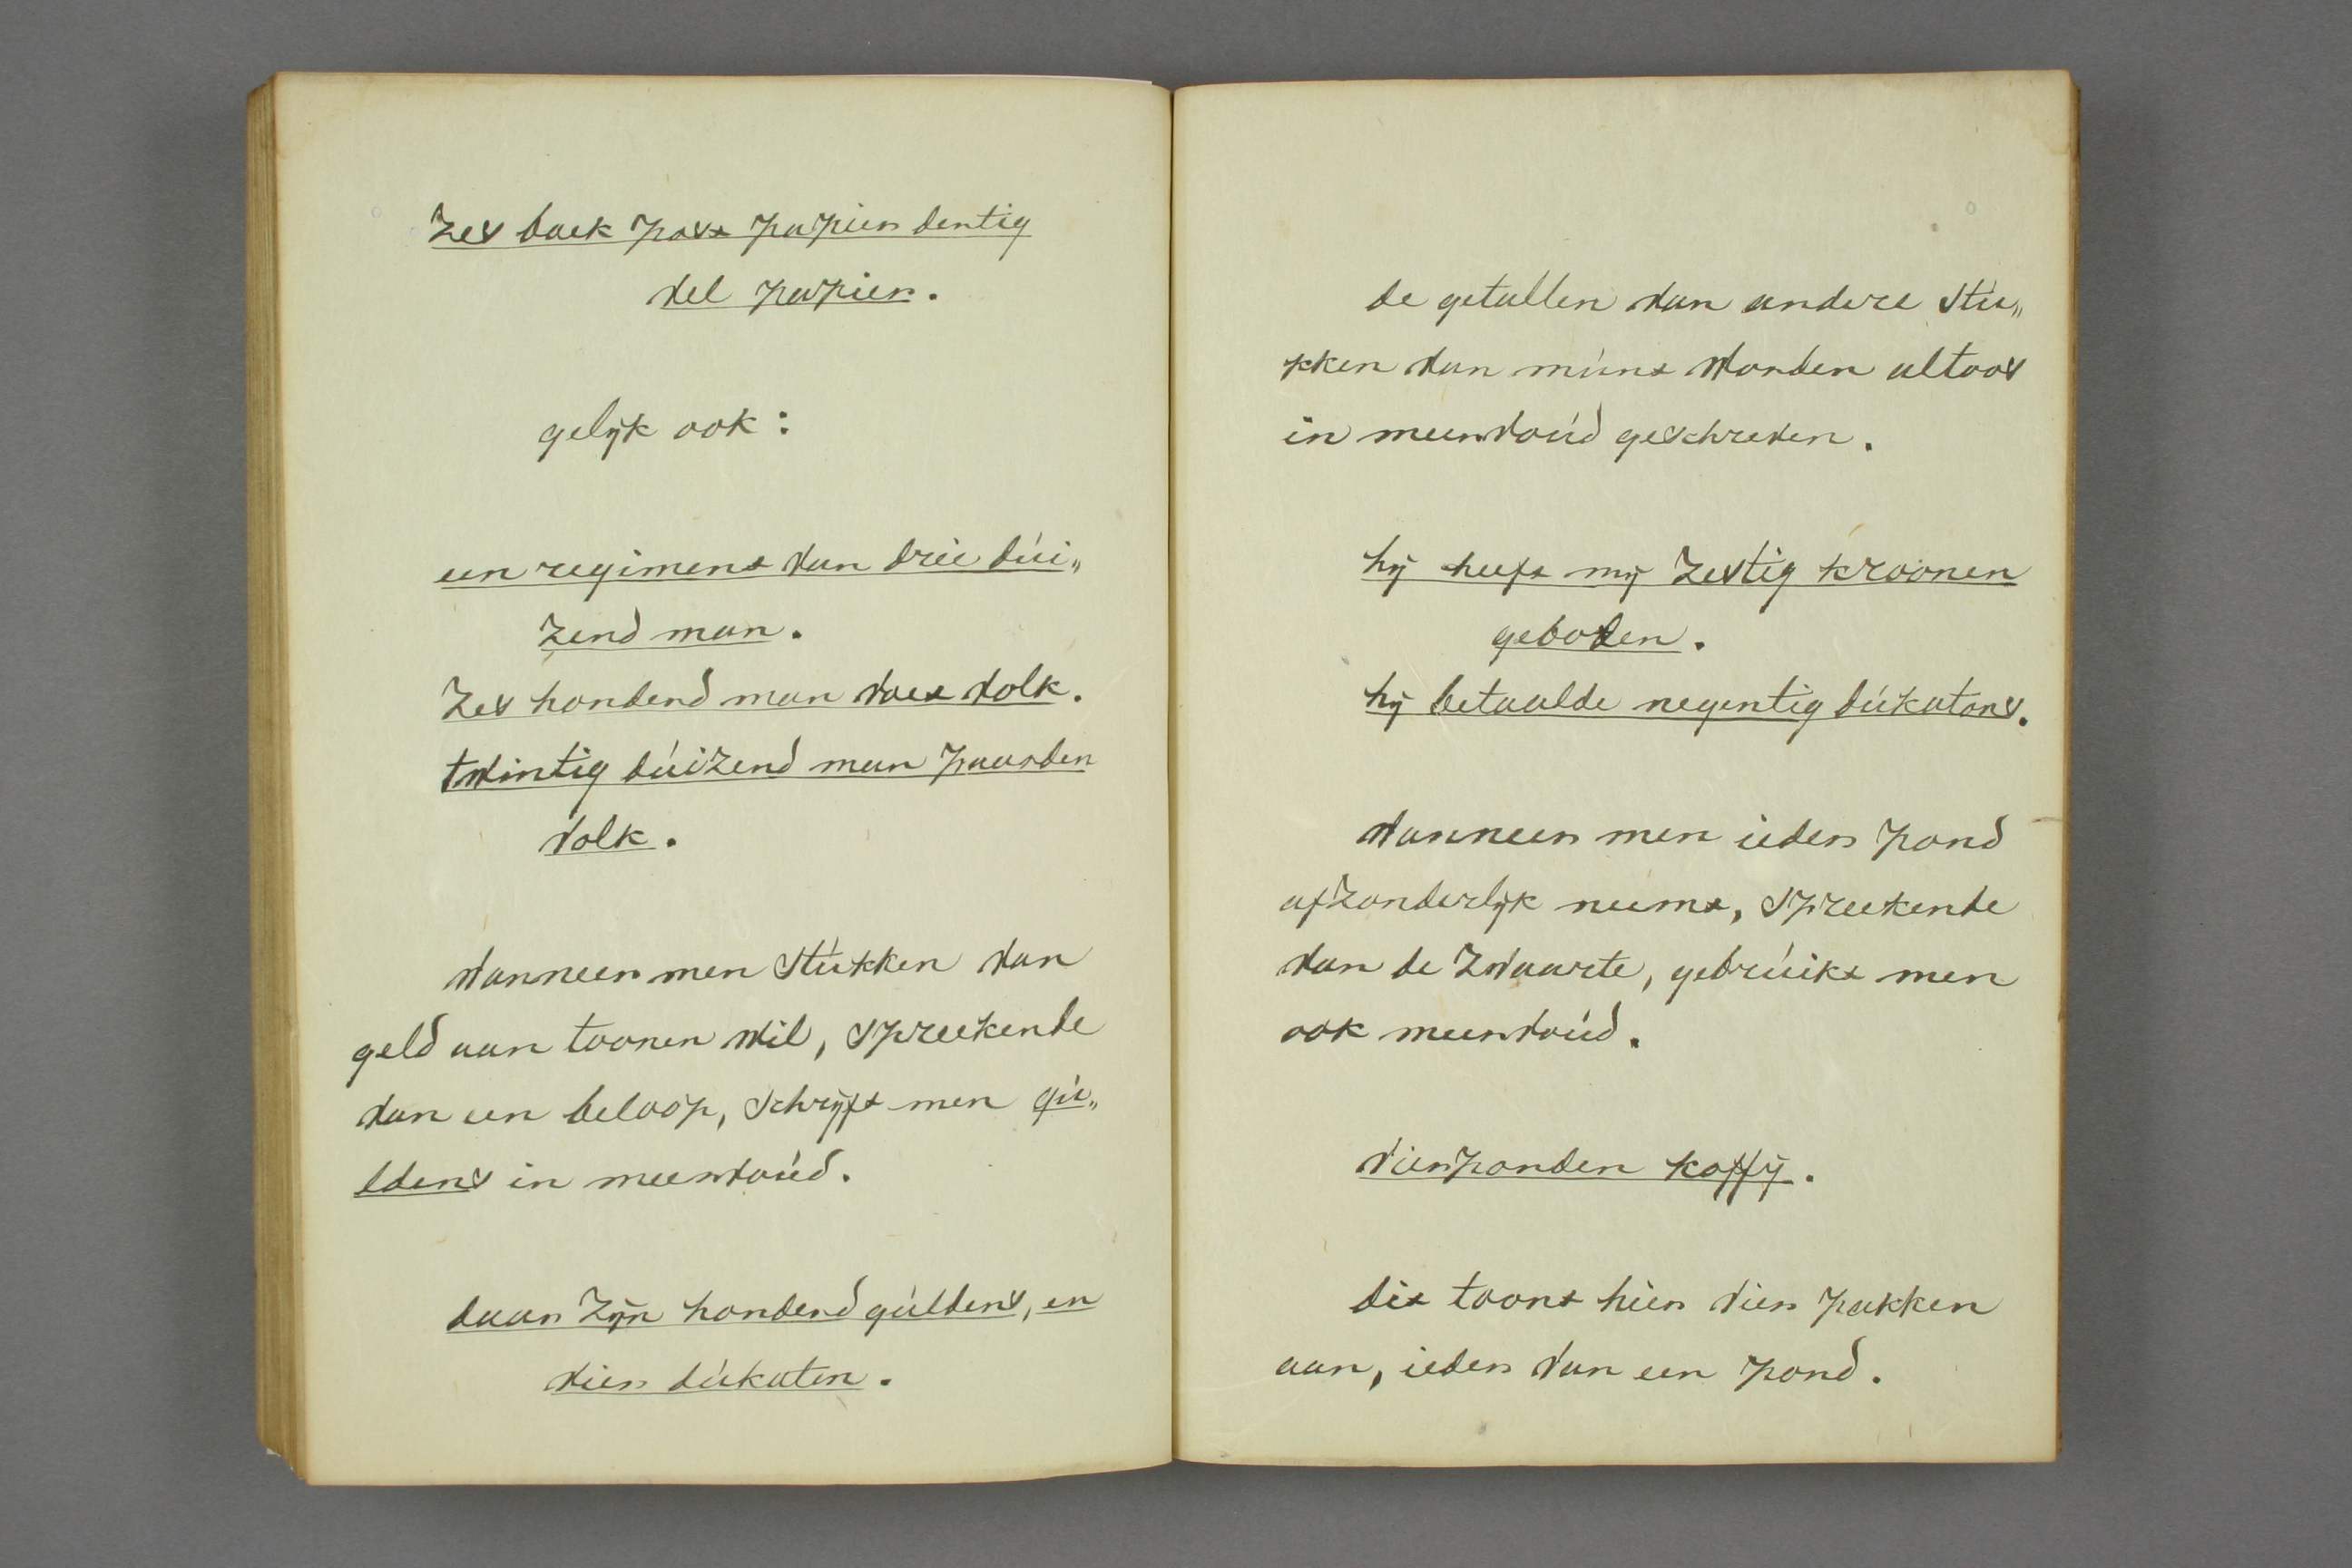 Zes boek post papier dertig
vel papier.
gelijk ook:
een regiment van drie dúi„
zend man.
Zes honderd man voet volk.
twintig dúizend man paarden
volk.
wanneer men stúkken van
geld aan toonen wil, spreekende
van een beloop, schrijft men gú„
ldens in meervoúd.
daar zijn honderd gúldens, en
vier dúkaten.
de getallen van andere stú„
kken van múnt worden altoos
in meervoúd geschreven.
hij heeft mij zestig kroonen
geboden.
hij betaalde negentig dúkatons.
wanneer men ieder pond
afzonderlijk neemt, spreekende
van de zwaarte, gebrúikt men
ook meervoúd.
vier ponden koffij.
dit toont hier vier pakken
aan, ieder van een pond.